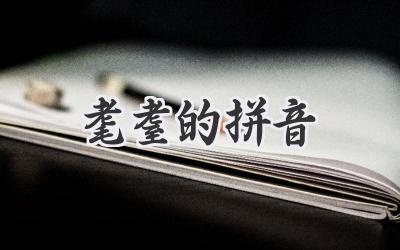 耄耋的拼音